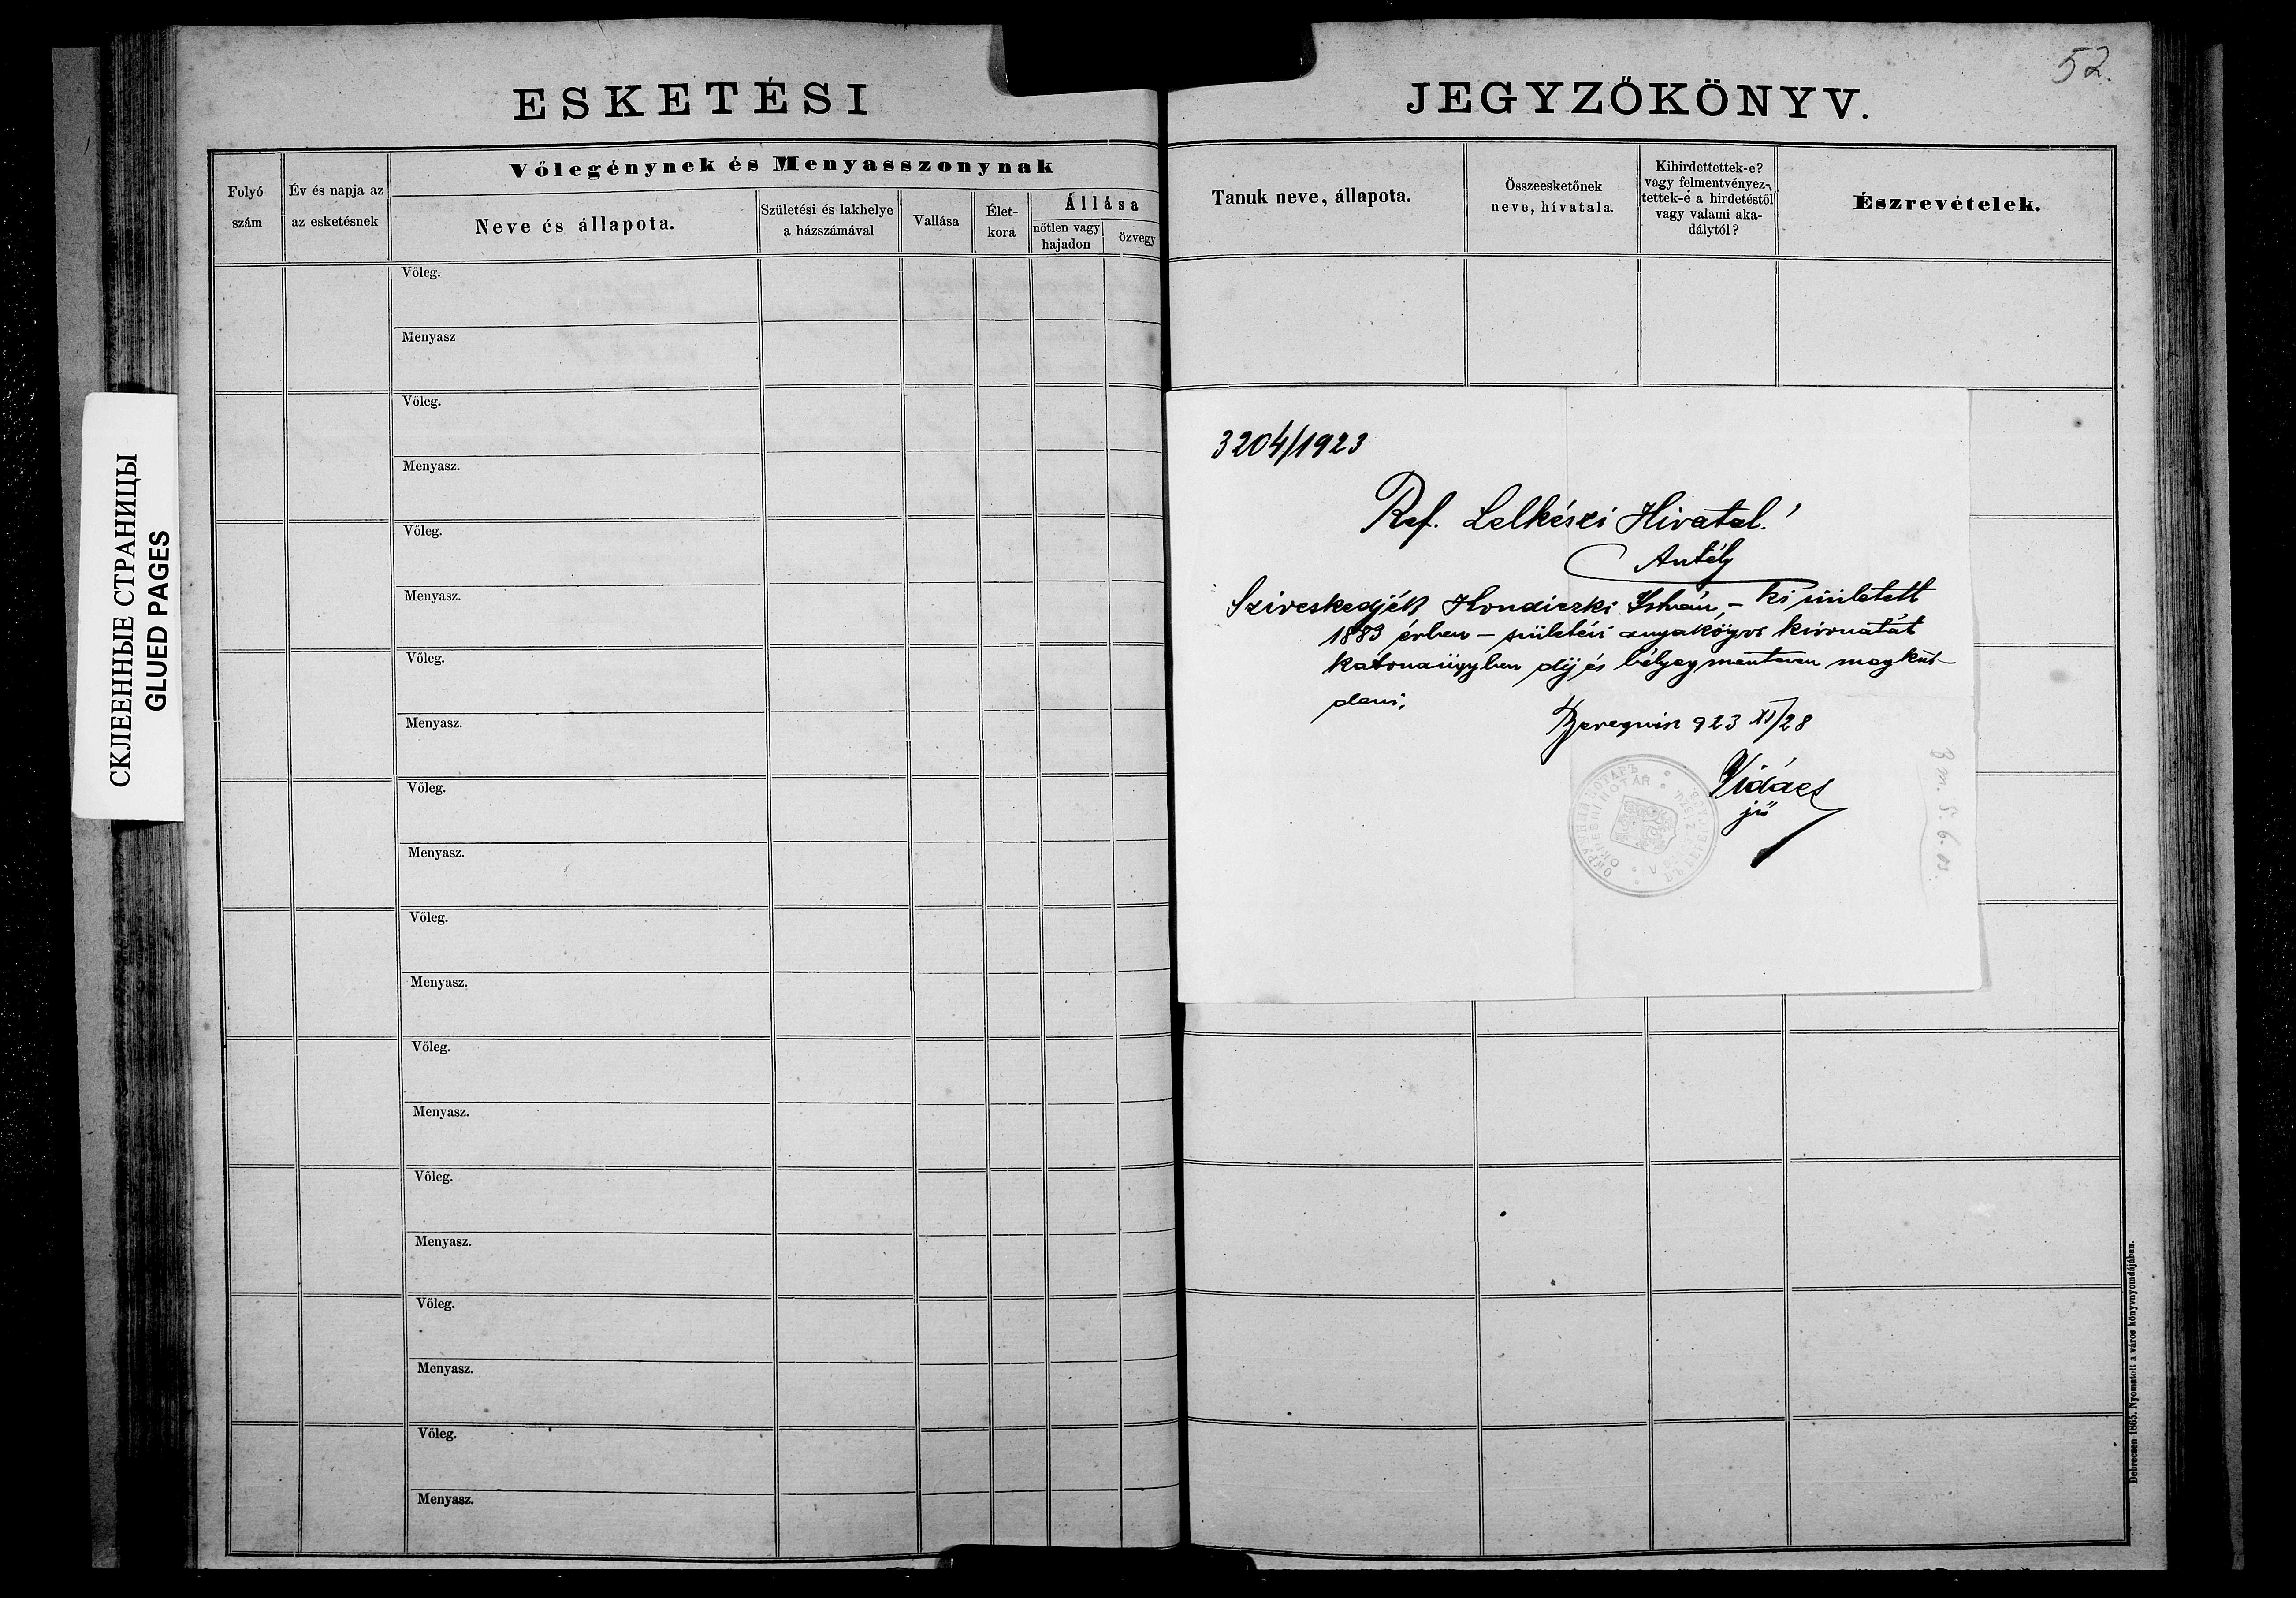 52.
ESKETÉSI JEGYZŐKÖNYV.
Folyó szám
Év és napja az az esketésnek
Vőlegénynek és Menyasszonynak
Neve és állapota.
Születési és lakhelye a házszámával
Vallása
Élet-kora
Állása
nőtlen vagy hajadon
özvegy
Tanuk neve, állapota.
Összeesketőnek neve, hívatala.
Kihirdettettek-e?
vagy felmentvényez-
tettek-é a hirdetéstől
vagy valami aka-
dálytól?
Észrevételek.
Vőleg.
Menyasz
Vőleg.
Menyasz.
Vőleg.
Menyasz.
Vőleg.
Menyasz.
Vőleg.
Menyasz.
Vőleg.
Menyasz.
Vőleg.
Menyasz.
Vőleg.
Menyasz.
Vőleg.
Menyasz.
Vőleg.
Menyasz.
СКЛЕЕННЫЕ СТРАНИЦЫ
GLUED PAGES
3204/1923
Ref. Lelkészi Hivatal!
Szíveskedjék István, – ki született
1883 évben – születési anyakönyvi kivonatát
katonaügyben díj és bélyegmentesen megkül-
deni,
923 XI/28
Vidács
jző
ОКРУЖНЫЙ НОТАРЪ
OKRESNÍ NOTÁR
Debreczen 1865. Nyomatott a város könyvnyomdájában.